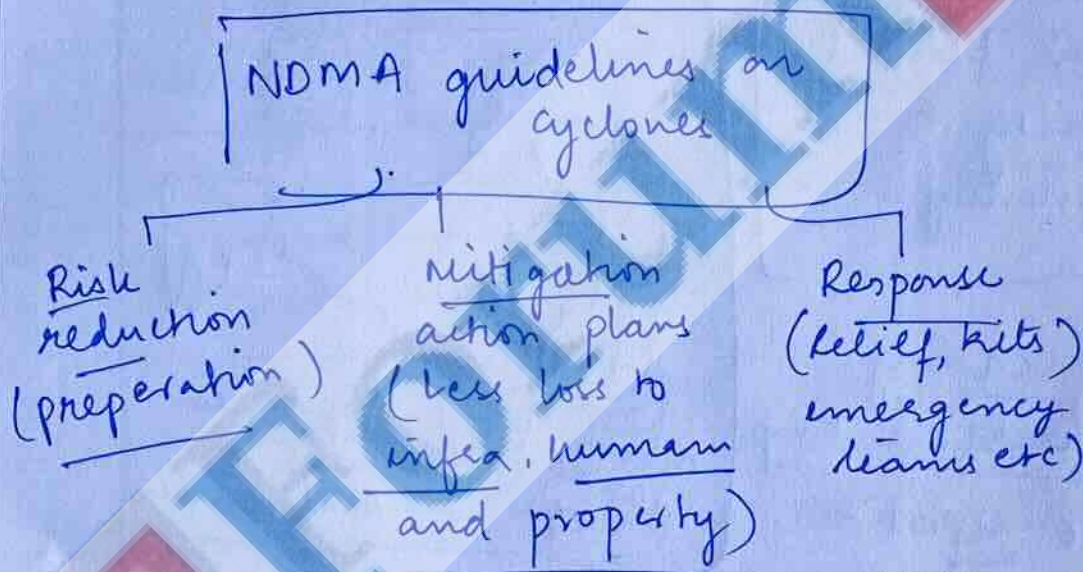 NDMA guidelines on
cyclones
Risk
reduction
(preperation)
Mitigation
action plans
(less loss to
infra, human
and property)
Response
(relief, kits)
emergency
teams etc)
Forum